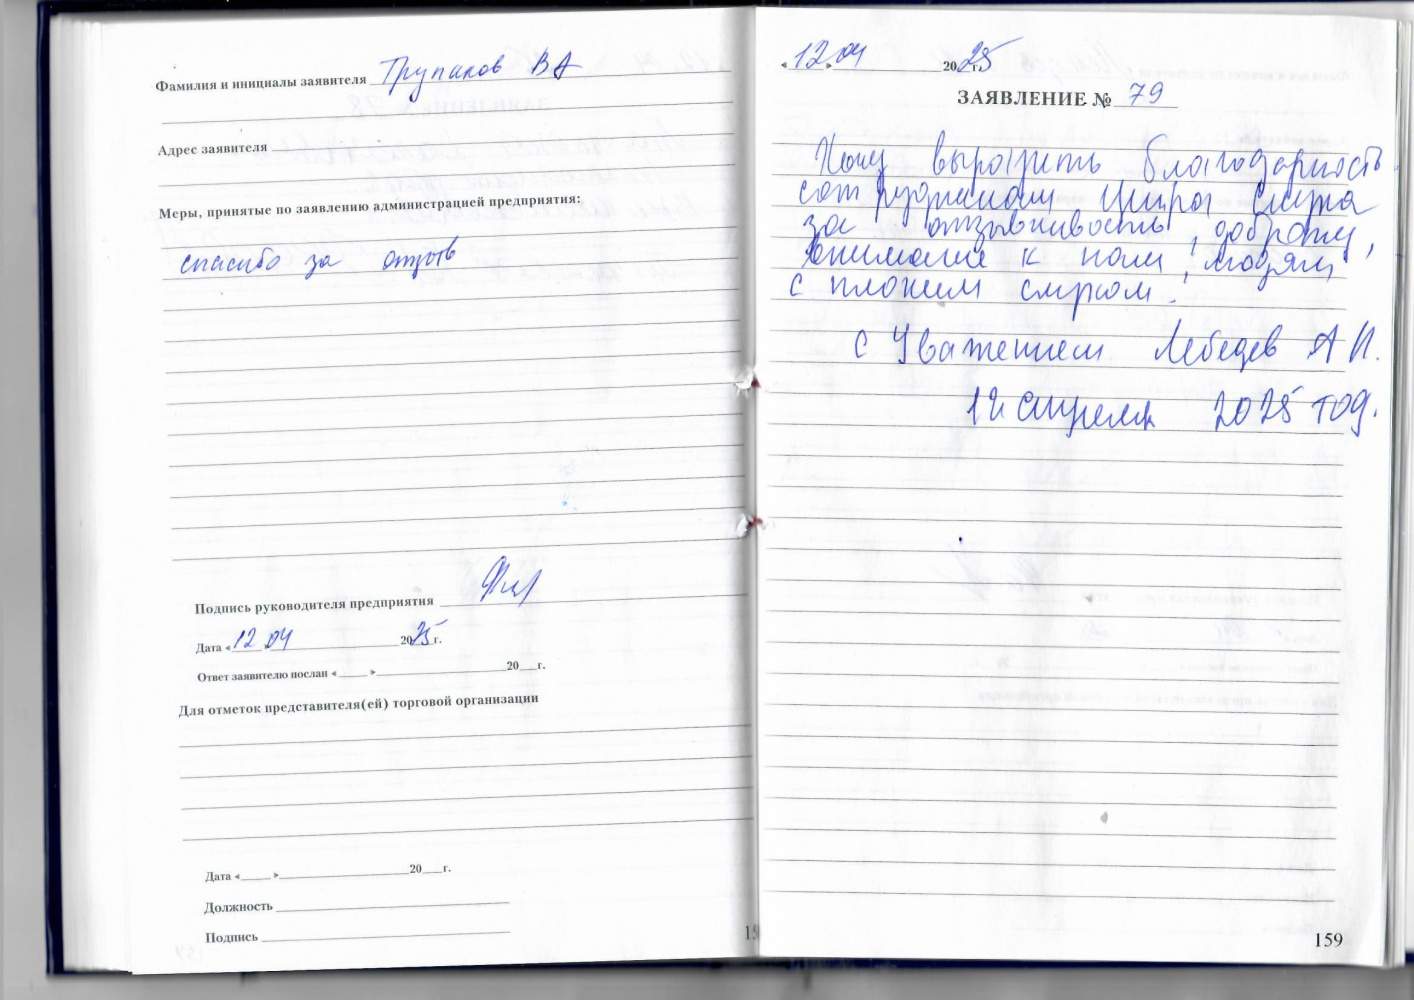 Фамилия и инициалы заявителя Трупаков ВА
Адрес заявителя
Меры, принятые по заявлению администрацией предприятия:
спасибо за отзыв
Подпись руководителя предприятия
Дата « 12 04 2025 г.
Ответ заявителю послан « » 20 г.
Для отметок представителя(ей) торговой организации
Дата « » 20 г.
Должность
Подпись
« 12 » 04 2025 г.
ЗАЯВЛЕНИЕ № 79
Хочу выразить благодарность
сотрудникам цирка
за отзывчивость, доброту,
внимание к нам, людям
с плохим слухом.
с Уважением Лебедев А И.
12 апреля 2025 год.
159